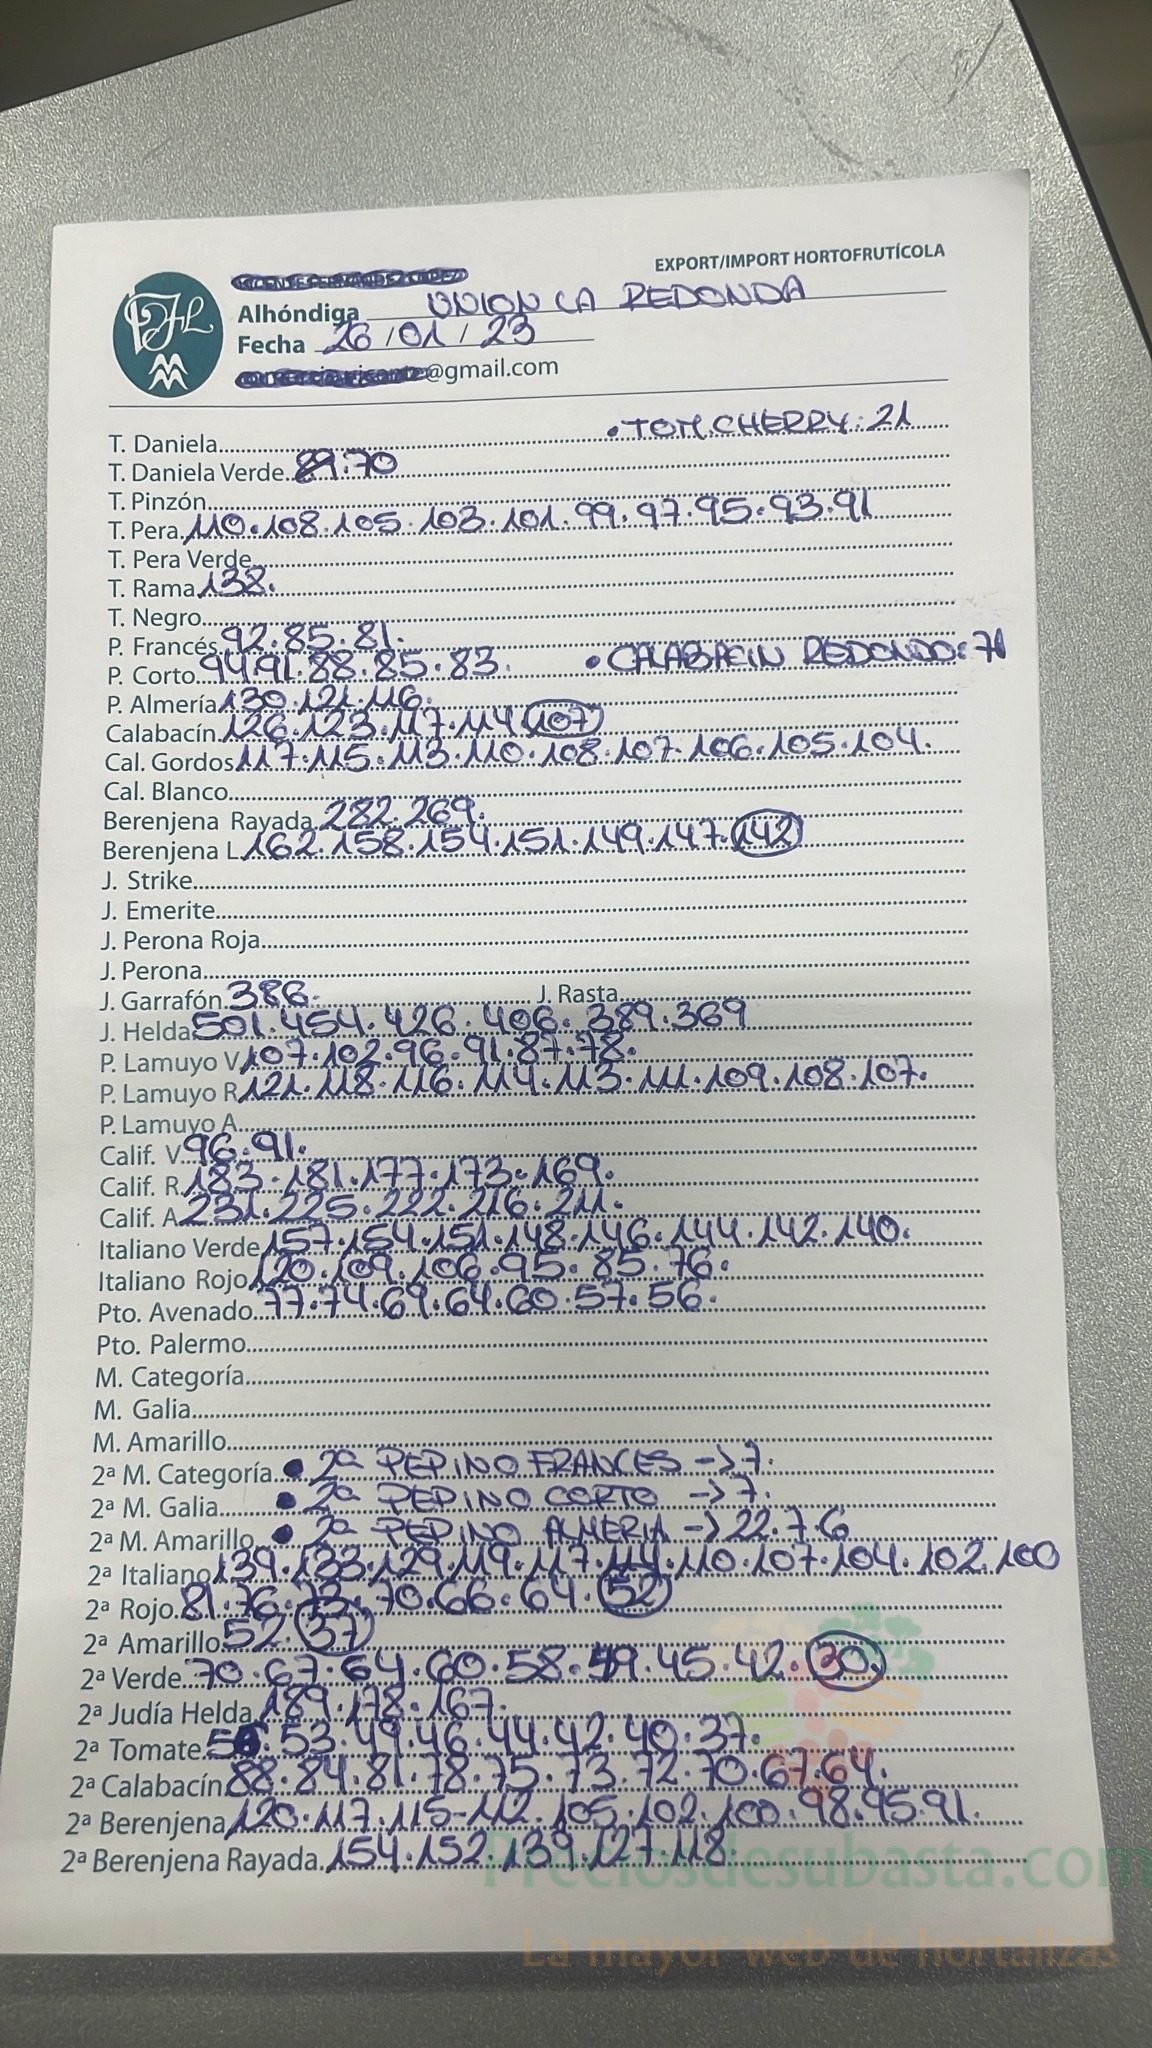 EXPORT/IMPORT HORTOFRUTÍCOLA
Alhóndiga UNION LA REDONDA
Fecha 26/01/23
@gmail.com
T. Daniela • TOM. CHERRY: 21
T. Daniela Verde 70
T. Pinzón
T. Pera 110.108.105.103.101.99.97.95.93.91
T. Pera Verde
T. Rama 138.
T. Negro
P. Francés 92.85.81.
P. Corto 94.91.88.85.83. • CALABACIN REDONDO: 71
P. Almería 130.121.116.
Calabacín 126.123.117.114.107
Cal. Gordos 117.115.113.110.108.107.106.105.104.
Cal. Blanco
Berenjena Rayada 282.269.
Berenjena L 162.158.154.151.149.147.142
J. Strike
J. Emerite
J. Perona Roja
J. Perona
J. Garrafón 386. J. Rasta
J. Helda 501.454.426.406.389.369
P. Lamuyo V 107.102.96.91.87.78.
P. Lamuyo R 121.118.116.114.113.111.109.108.107.
P. Lamuyo A
Calif. V 96.91.
Calif. R 183.181.177.173.169.
Calif. A 231.225.222.216.211.
Italiano Verde 157.154.151.148.146.144.142.140.
Italiano Rojo 120.109.106.95.85.76.
Pto. Avenado 77.74.69.64.60.57.56.
Pto. Palermo
M. Categoría
M. Galia
M. Amarillo
2ª M. Categoría • 2ª PEPINO FRANCES -> 7.
2ª M. Galia • 2ª PEPINO CORTO -> 7.
2ª M. Amarillo • 2ª PEPINO ALMERIA -> 22.7.6
2ª Italiano 139.133.129.119.117.114.110.107.104.102.100
2ª Rojo 81.76.73.70.66.64.52
2ª Amarillo 52.37
2ª Verde 70.67.64.60.58.49.45.42.30.
2ª Judía Helda 189.178.167.
2ª Tomate 53.49.46.44.42.40.37.
2ª Calabacín 88.84.81.78.75.73.72.70.67.64.
2ª Berenjena 120.117.115-112.105.102.100.98.95.91.
2ª Berenjena Rayada 154.152.139.127.118.
Preciosdesubasta.com
La mayor web de hortalizas